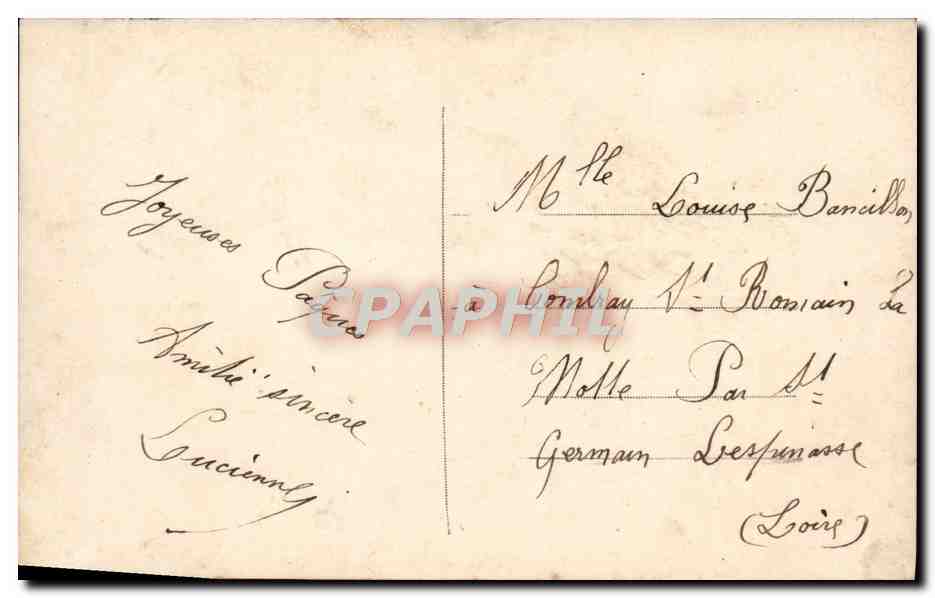 Joyeuses
Pâques
Amitié sincère
Lucienne
Mlle Louise Bancillon
à Combray St Romain La
Motte Par St
Germain Lespinasse
(Loire)
CPAPHIL